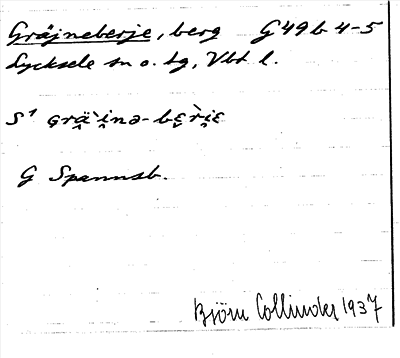 Gräjneberje, berg G49b 4-5
Lycksele sn o. tg, Vbt l.
S¹ grä̀i̯nə-bɛri̯ɛ
G Spannsb.
Björn Collinder 1937